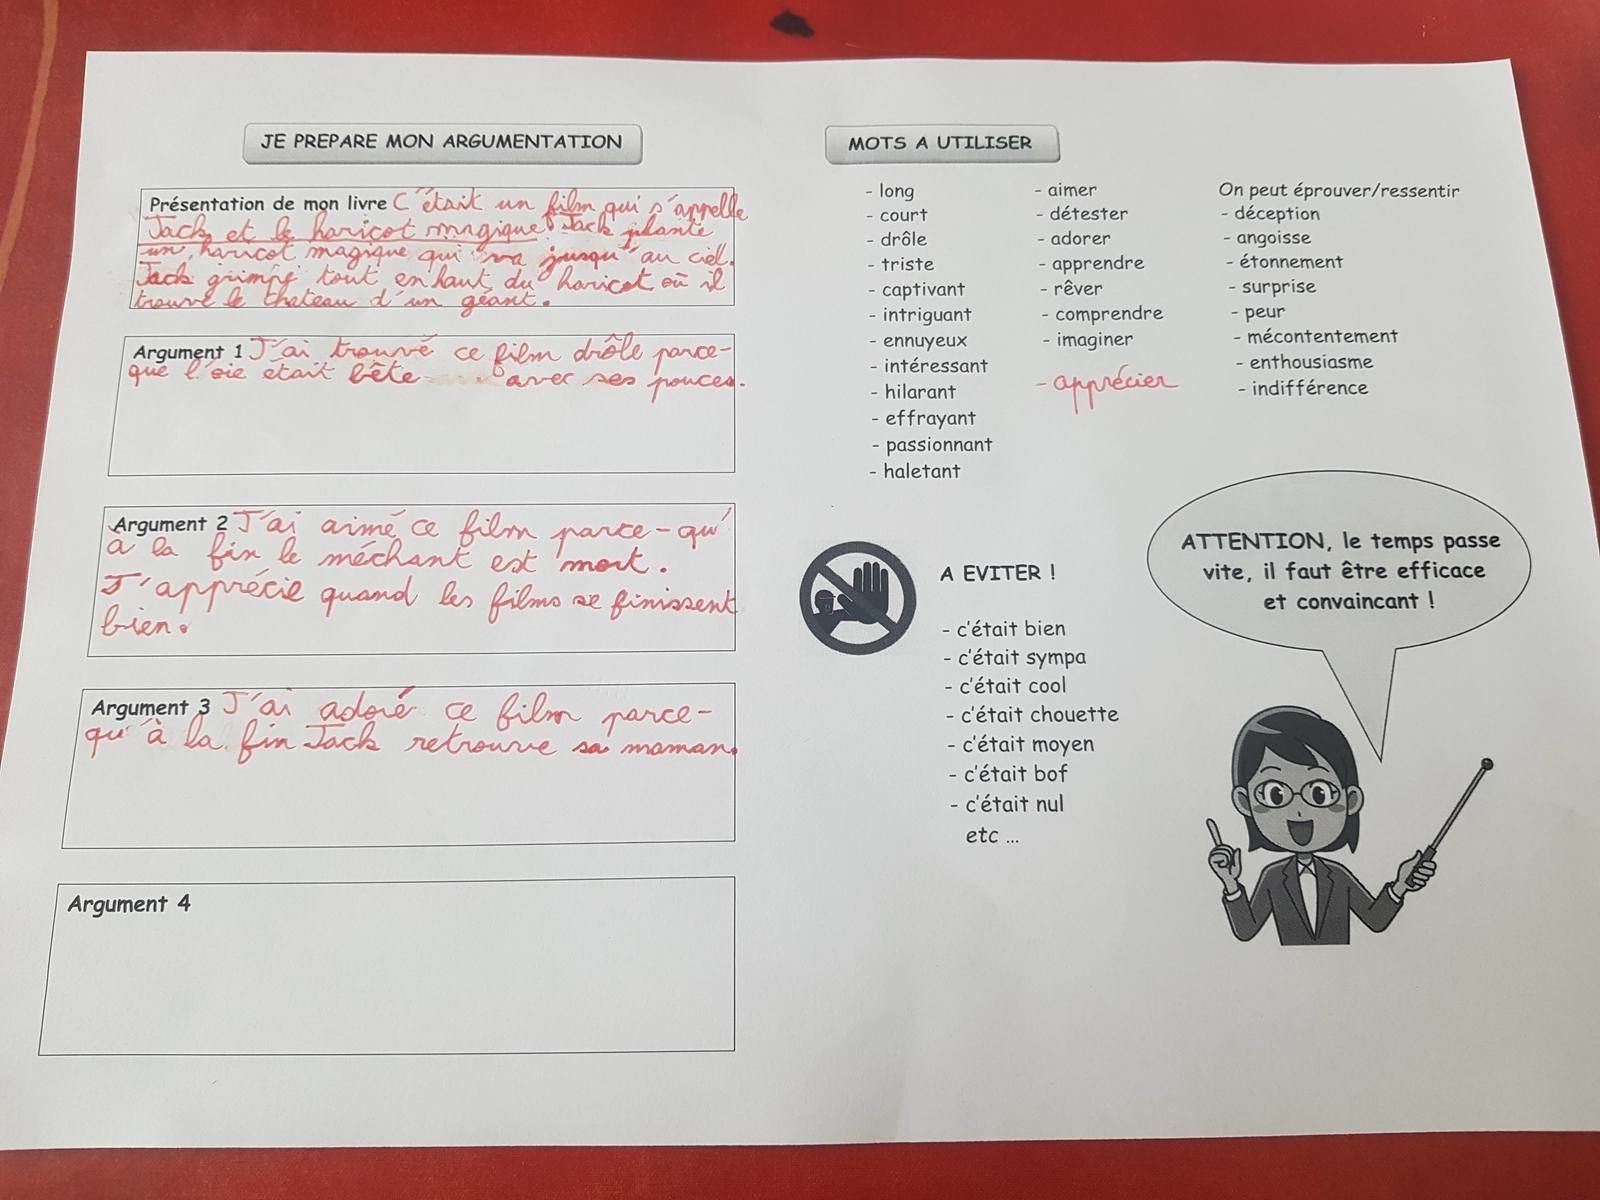 JE PREPARE MON ARGUMENTATION
Présentation de mon livre C'était un film qui s'appelle
Jack et le haricot magique. Jack plante
un haricot magique qui va jusqu'au ciel.
Jack grimpe tout en haut du haricot où il
trouve le chateau d'un géant.
Argument 1 J'ai trouvé ce film drôle parce-
que l'oie etait bête avec ses pouces.
Argument 2 J'ai aimé ce film parce-qu'
à la fin le méchant est mort.
J'apprécie quand les films se finissent
bien.
Argument 3 J'ai adoré ce film parce-
qu'à la fin Jack retrouve sa maman.
Argument 4
MOTS A UTILISER
- long
- court
- drôle
- triste
- captivant
- intriguant
- ennuyeux
- intéressant
- hilarant
- effrayant
- passionnant
- haletant
- aimer
- détester
- adorer
- apprendre
- rêver
- comprendre
- imaginer
- apprécier
On peut éprouver/ressentir
- déception
- angoisse
- étonnement
- surprise
- peur
- mécontentement
- enthousiasme
- indifférence
A EVITER !
- c'était bien
- c'était sympa
- c'était cool
- c'était chouette
- c'était moyen
- c'était bof
- c'était nul
etc ...
ATTENTION, le temps passe
vite, il faut être efficace
et convaincant !